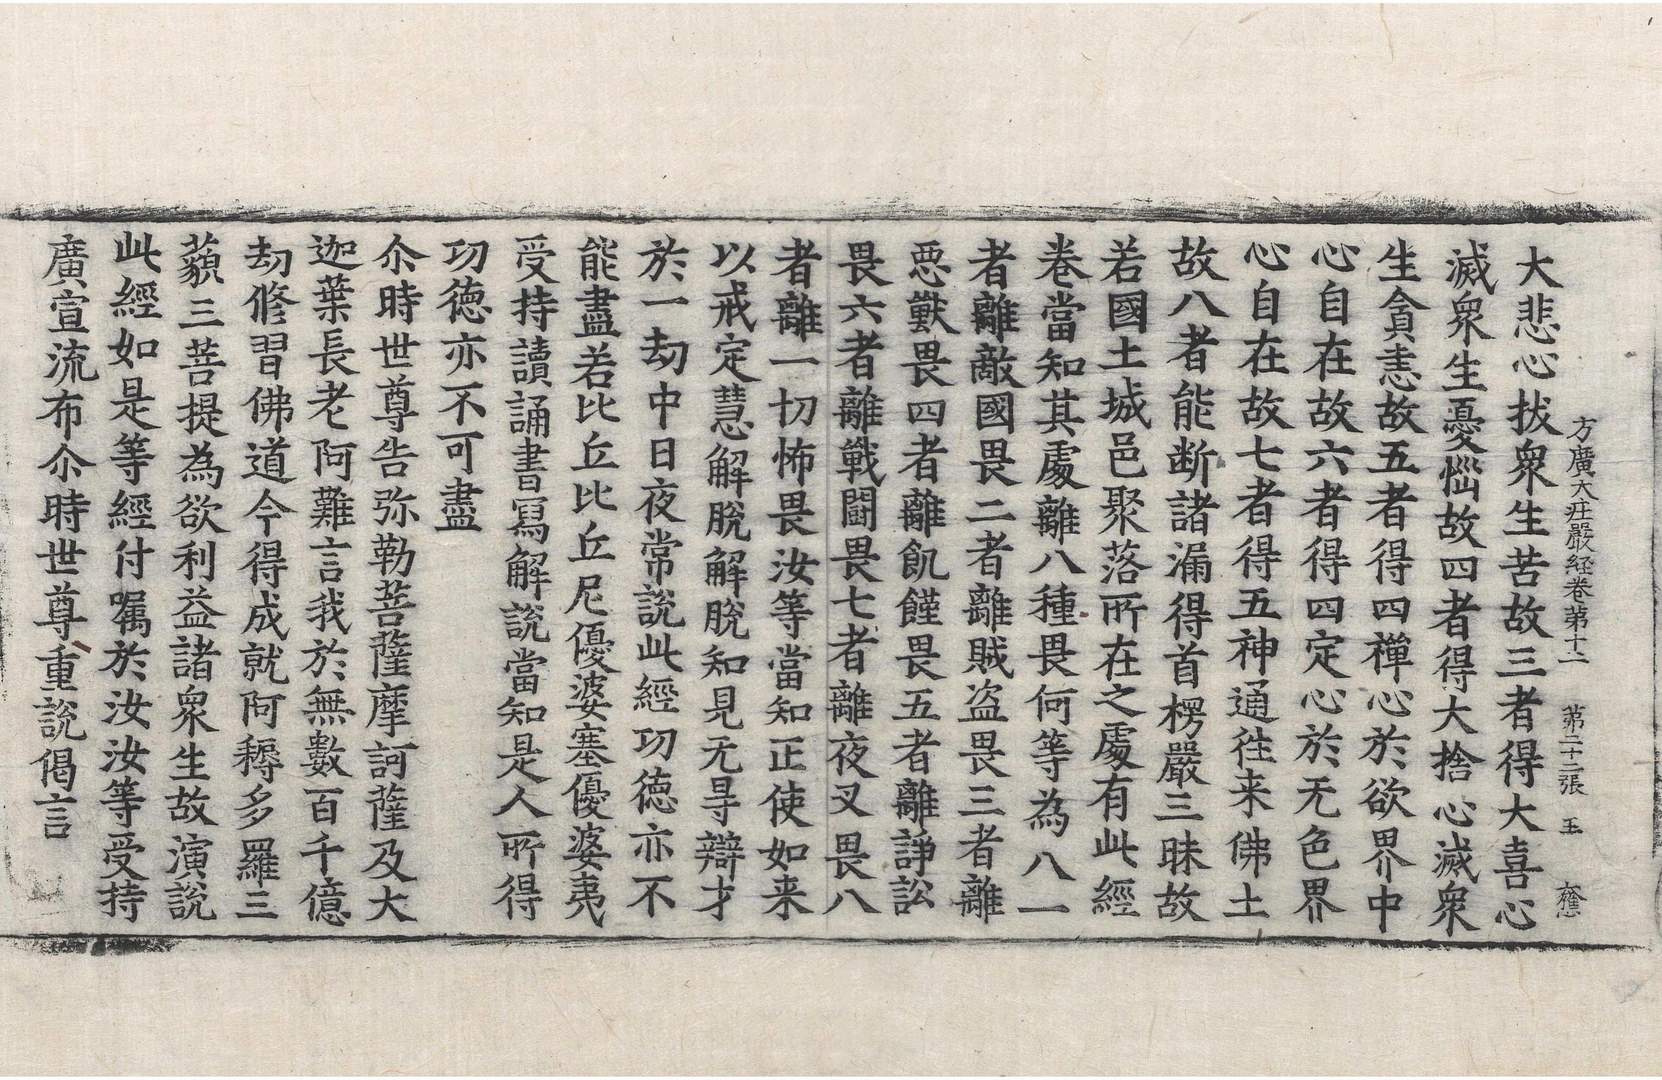 方廣大荘嚴経卷苐十二 苐二十二張 王
大悲心拔衆生苦故三者得大喜心
滅衆生憂惱故四者得大捨心滅衆
生貪恚故五者得四禪心於欲界中
心自在故六者得四定心於无色界
心自在故七者得五神通往来佛土
故八者能断諸漏得首楞嚴三昧故
若國土城邑聚落所在之處有此經
卷當知其處離八種畏何等為八一
者離敵國畏二者離賊盗畏三者離
悪獸畏四者離飢饉畏五者離諍訟
畏六者離戰鬪畏七者離夜叉畏八
者離一切怖畏汝等當知正使如来
以戒定慧解脫解脫知見无㝵辯才
於一劫中日夜常說此經功徳亦不
能盡若比丘比丘尼優婆塞優婆夷
受持讀誦書寫解說當知是人所得
功徳亦不可盡
尒時世尊告弥勒菩薩摩訶薩及大
迦葉長老阿難言我於無數百千億
劫修習佛道今得成就阿耨多羅三
藐三菩提為欲利益諸衆生故演說
此經如是等經付嘱於汝汝等受持
廣宣流布尒時世尊重說偈言